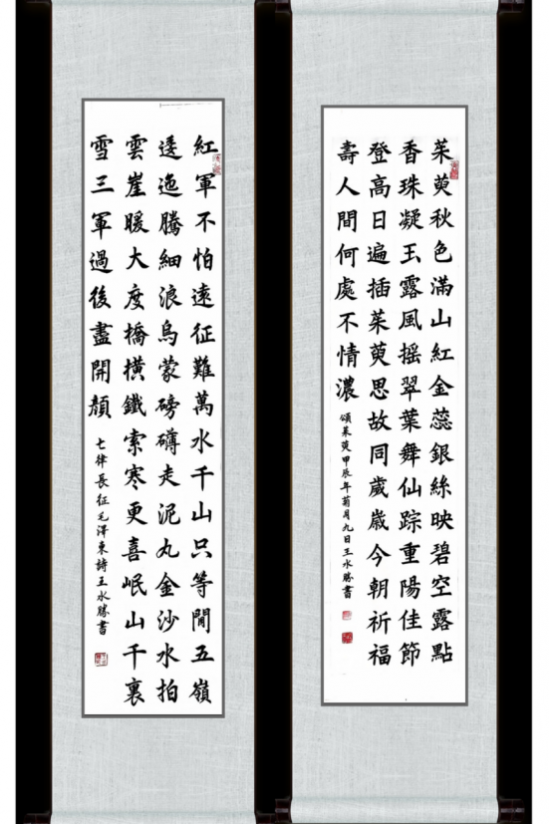 茱萸秋色滿山紅金蕊銀絲映碧空露點
香珠凝玉露風摇翠葉舞仙踪重陽佳節
登高日遍插茱萸思故同歲歲今朝祈福
壽人間何處不情濃
頌茱萸甲辰年菊月九日王水勝書
紅軍不怕遠征難萬水千山只等閒五嶺
逶迤騰細浪烏蒙磅礴走泥丸金沙水拍
雲崖暖大度橋橫鐵索寒更喜岷山千裏
雪三軍過後盡開顏
七律長征毛澤東詩王水勝書